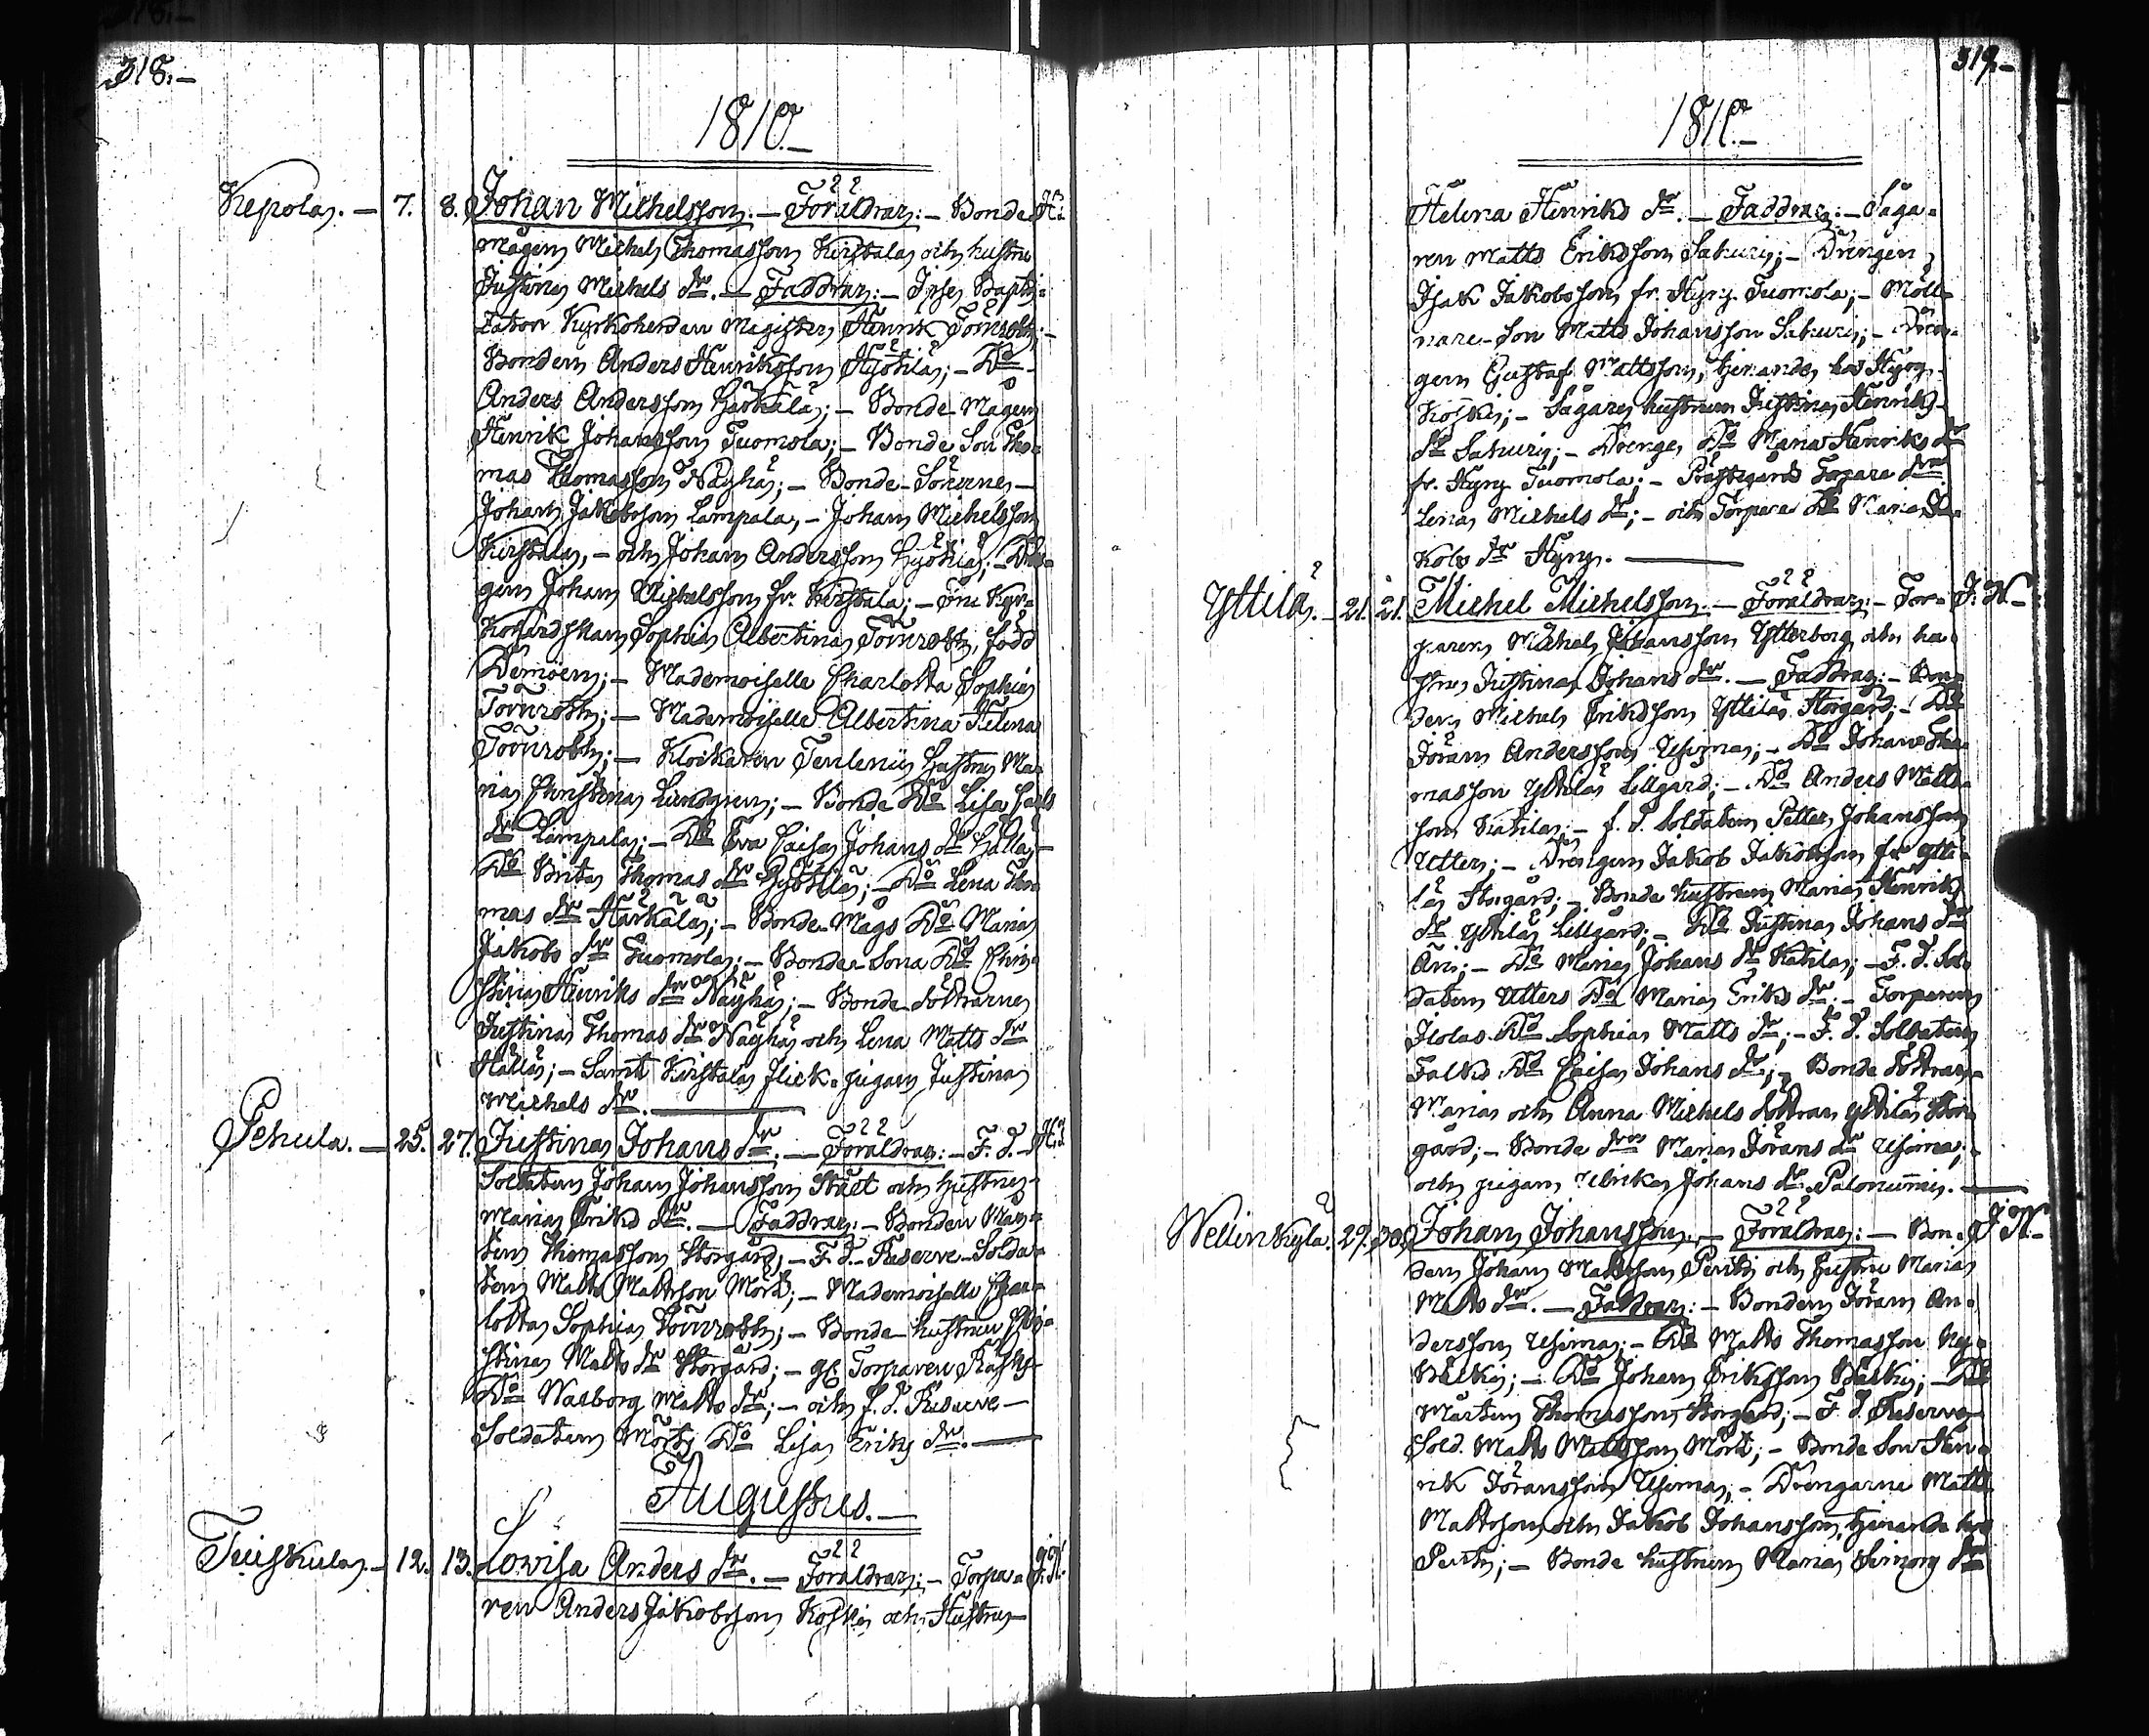 318.-
1810.-
Kepola. - 7. 8. Johan Michelsson. - Föräldrar: - Bonde
Mågen Michel Thomasson Kirstala och hustru
Justina Michels dr. - Faddrar: - Ipse Bapti-
zator Kyrkoherden Magister Henrik Törnroth; -
Bonden Anders Henriksson Hyötilä; - Do
Anders Andersson Härkälä; - Bonde-Mågen
Henrik Johansson Tuomola; - Bonde Son Tho-
mas Thomasson Näyhä; - Bonde-Sönerne -
Johan Jakobsson Lampala, - Johan Michelsson
Kirstala, - och Johan Andersson Hyötilä; - Drän-
gen Johan Michelsson fr. Kirstala; - Fru Kyr-
koherdskan Sophia Albertina Törnroth, född
Demoen; - Mademoiselle Charlotta Sophia
Törnroth; - Mademoiselle Albertina Helena
Törnroth; - Klockaren Tenlenii Hustru Ma-
ria Christina Lindgren; - Bonde Do Lisa Carls
dr Lampala; - Do Eva Caisa Johans dr Hälla; -
Do Brita Thomas dr Hyötilä; - Do Lena Tho-
mas dr Härkälä; - Bonde-Mågs Do Maria
Jakobs dr Tuomola; - Bonde-Sona Do Chri-
stina Henriks dr Näyhä; - Bonde-döttrarne
Justina Thomas dr Näyhä och Lena Matts dr
Hälla; - Samt Kirstala flick-pigan Justina
Michels dr.
Pehula. - 25. 27. Justina Johans dr. - Föräldrar: - F. d.
Soldaten Johan Johansson Stält och hustru
Maria Eriks dr. - Faddrar: - Bonden Mår-
ten Thomasson Storgård; - F. d. Reserve-Solda-
ten Matts Mattsson Mörk; - Mademoiselle Char-
lotta Sophia Törnroth; - Bonde-hustrun Chri-
stina Matts dr Storgård; - gl. Torparen
Do Walborg Matts dr; - och f. d. Reserve-
Soldaten Mörks Do Lisa Eriks dr.
Augustus.-
Tuiskula. - 12. 13. Lovisa Anders dr. - Föräldrar: - Torpa-
ren Anders Jakobsson Koski och Hustru
319.-
1810.-
Helena Henriks dr. - Faddrar: - Såga-
ren Matts Eriksson Sahuri; - Drengen
Isak Jakobsson fr. Hyry Tuomola; - Möll-
nare-Son Matts Johansson Sahuri; - Drän-
gen Gustaf Mattsson, tjenande hos Hyry
Koski; - Sågare hustrun Justina Henriks
dr Sahuri; - Drenge Do Maria Henriks dr
fr. Hyry Tuomola; - Prästegårds Torpare dr
Lena Michels dr; - och Torpare Do Maria Ja-
kobs dr Hyry.
Yttilä. - 21. 21. Michel Michelsson. - Föräldrar: - Tor-
paren Michel Johansson Ytterborg och hu-
stru Justina Johans dr. - Faddrar: - Bon-
den Michel Eriksson Yttilä Storgård; - Do
Jöran Andersson Uhima; - Do Johan Tho-
masson Yttilä Lillgård; - Do Anders Matts-
son Katila; - f. d. Soldaten Petter Johansson
Utter; - Drengen Jakob Jakobsson fr. Ytti-
lä Storgård; - Bonde hustrun Maria Henriks
dr Yttilä Lillgård; - Do Justina Johans dr
Ani; - Do Maria Johans dr Katila; - F. d. Sol-
daten Utters Do Maria Eriks dr; - Torparen
Ilolas Do Sophia Matts dr; - F. d. Soldaten
Falks Do Caisa Johans dr; - Bonde döttrar
Maria och Anna Michels döttrar Yttilä Stor-
gård; - Bonde dr Maria Jörans dr Uhima; -
och pigan Ulrika Johans dr Palonummi.
Wellinkylä. 29. 30. Johan Johansson. - Föräldrar: - Bon-
den Johan Mattsson Pertti och hustru Maria
Matts dr. - Faddrar: - Bonden Jöran An-
dersson Uhima; - Do Matts Thomasson Ny-
Bälki; - Do Johan Eriksson Bälki; - Do
Mårten Thomasson Storgård; - F. d. Reserve-
Sold. Matts Mattsson Mörk; - Bonde Son Hen-
rik Jöransson Uhima; - Drengarne Matts
Mattsson och Jakob Johansson, tjenande hos
Pertti; - Bonde hustrun Maria Simons dr